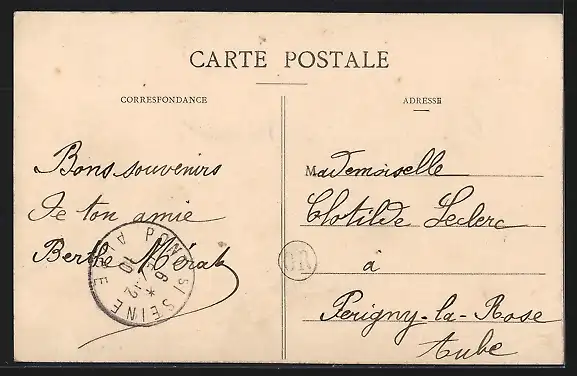 CARTE POSTALE
CORRESPONDANCE
ADRESSE
Bons souvenirs
De ton amie
Berthe Mérat
PONT S/ SEINE
AUBE
6 - 12
10
BR
Mademoiselle
Clotilde Leclerc
à
Périgny-la-Rose
Aube